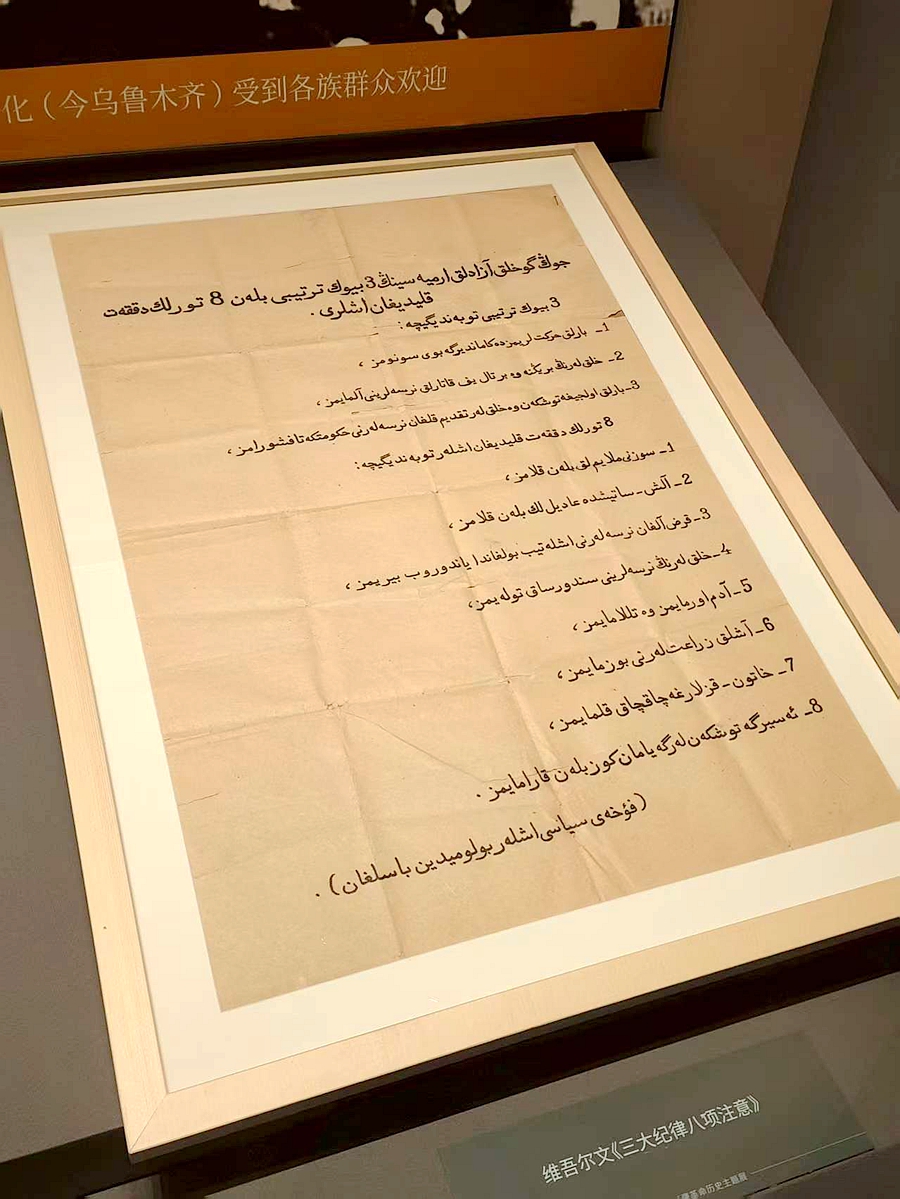 化（今乌鲁木齐）受到各族群众欢迎
جوڭ گو خلق آزادلق ارمیه سینڭ 3 بیوك ترتیبی بلەن 8 تورلك دققەت
قلیدیغان اشلری .
3 بیوك ترتیبی توبەندیگیچه :
1_ بارلق حرکت لریمزده کاماندیرگه بوی سونومز ،
2_ خلق لەرنڭ بریڭنه وه بر تال یف قاتارلق نرسه لرینی آلمایمز ،
3_ بارلق اولجیغه توشکەن وه خلق لەر تقدیم قلغان نرسه لەرنی حکومتکه تافشورامز ،
8 تورلك دققەت قلیدیغان اشلەر توبەندیگیچه :
1_ سوزنی ملایم لق بلەن قلامز ،
2_ آلش - ساتیشده عادیل لك بلەن قلامز ،
3_ قرض آلغان نرسه لەرنی اشلەتیب بولغاندا یاندوروب بیریمز ،
4_ خلق لەرنڭ نرسه لرینی سندورساق تولەیمز ،
5_ آدم اورمایمز وه تللامایمز ،
6_ آشلق زراعت لەرنی بوزمایمز ،
7_ خاتون - قزلارغه چاقچاق قلمایمز ،
8_ ئەسیرگه توشکەن لەرگه یامان کوز بلەن قارامایمز .
(فؤخەی سیاسی اشلەر بولومیدین باسلغان) .
维吾尔文《三大纪律八项注意》
革命历史主题展